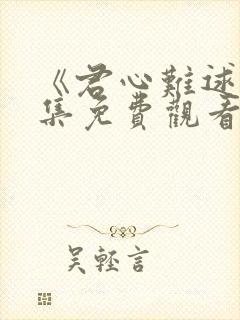 《君心難逑
集免費觀看
吴輕言